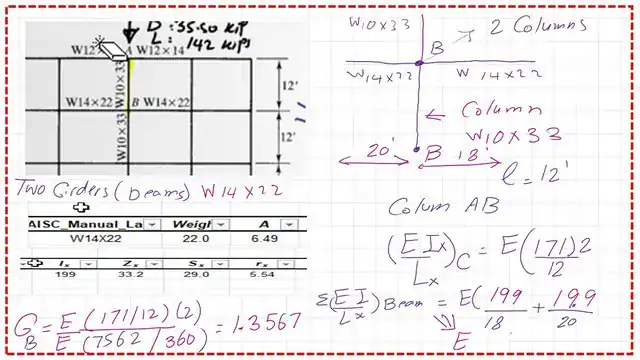 D: 35.50 KIP
L: 142 KIPS
W12× A W12×14
W10×33
12'
W14×22 B W14×22
W10×33
12'
Two Girders (beams) W14×22
AISC_Manual_La Weigh A
W14X22 22.0 6.49
Iₓ Zₓ Sₓ rₓ
199 33.2 29.0 5.54
G_B = E (171/12) (2) / E (7562/360) = 1.3567
W10×33
2 Columns
B
W14×22 W 14×22
← Column
W10×33
20' B 18'
l = 12'
Column AB
(E Iₓ / Lₓ)_C = E (171) 2 / 12
Σ (E I / Lₓ) Beam = E (199 / 18 + 199 / 20)
E